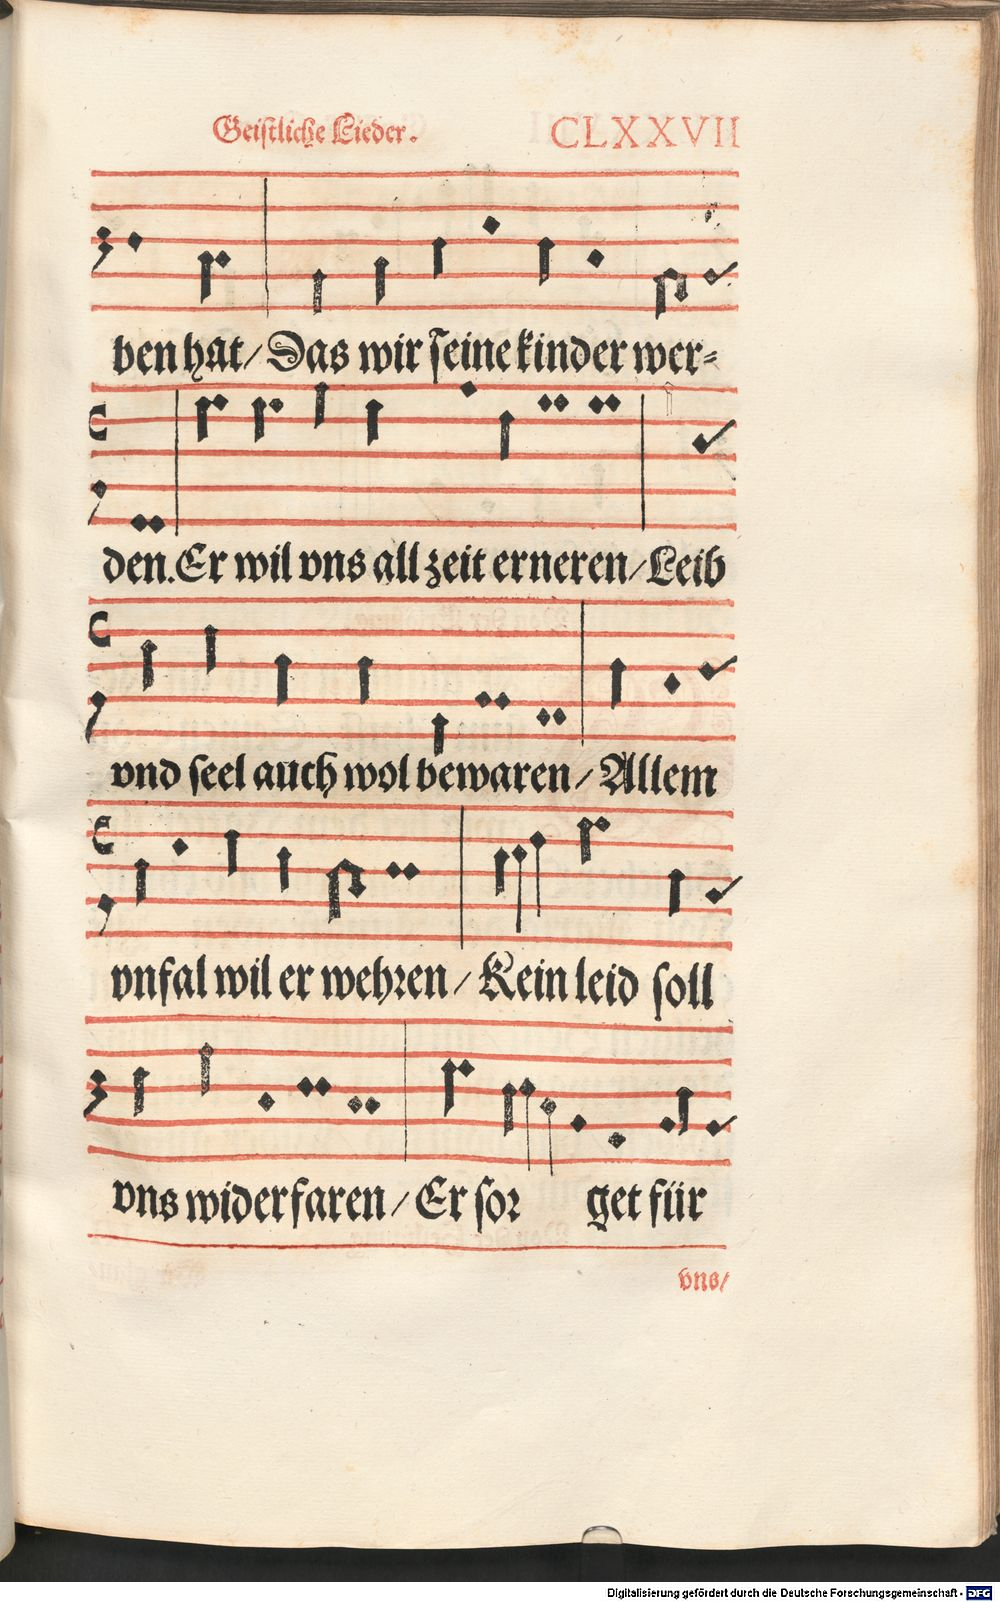 Geistliche Lieder. CLXXVII
ben hat/ Das wir seine kinder wer⸗
den. Er wil vns all zeit erneren/ Leib
vnd seel auch wol bewaren/ Allem
vnfal wil er wehren/ Kein leid soll
vns widerfaren/ Er sor get für
vns/
Digitalisierung gefördert durch die Deutsche Forschungsgemeinschaft - DFG